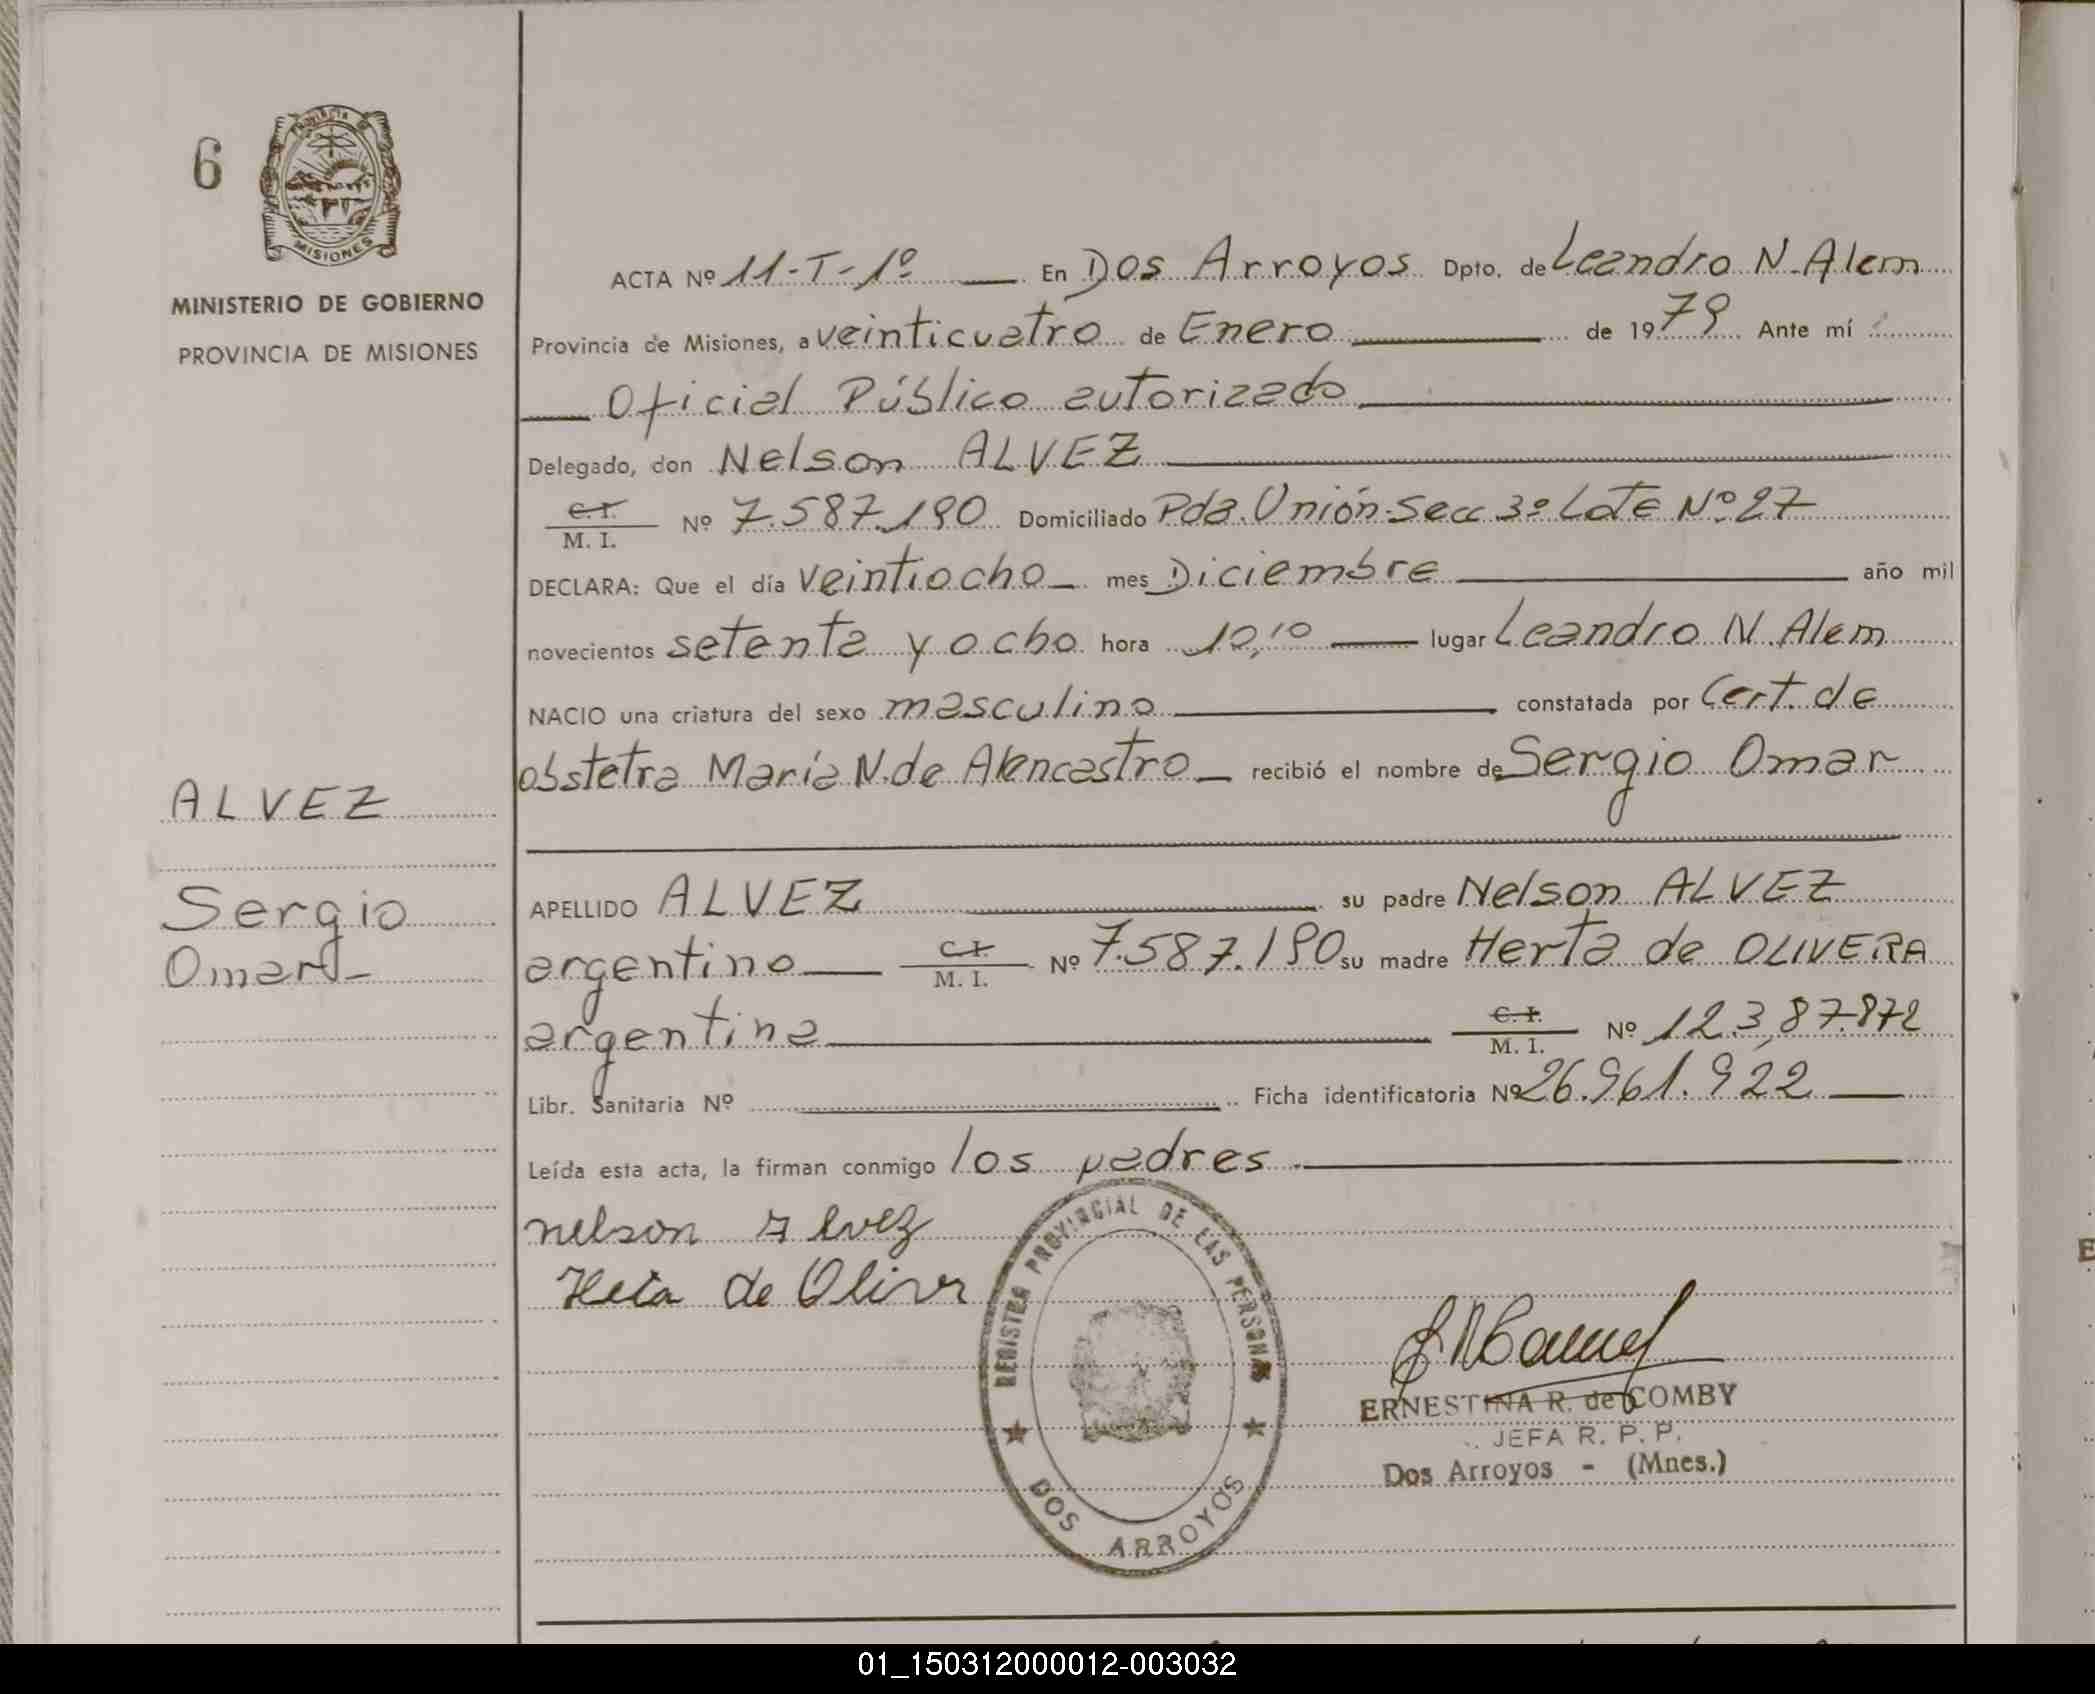 6
PROVINCIA DE
MISIONES
MINISTERIO DE GOBIERNO
PROVINCIA DE MISIONES
ALVEZ
Sergio
Omar
ACTA Nº 11-T-1º En Dos Arroyos Dpto. de Leandro N Alem
Provincia de Misiones, a veinticuatro de Enero de 1979 Ante mí
Oficial Público autorizado
Delegado, don Nelson ALVEZ
C.I. M. I. Nº 7.587.190 Domiciliado Pda. Unión-Secc 3º Lote Nº 27
DECLARA: Que el día veintiocho mes Diciembre año mil
novecientos setenta y ocho hora 10,10 lugar Leandro N. Alem
NACIO una criatura del sexo masculino constatada por Cert. de
obstetra María N. de Alencastro recibió el nombre de Sergio Omar
APELLIDO ALVEZ su padre Nelson ALVEZ
argentino C.I. M. I. Nº 7.587.190 su madre Herta de OLIVERA
argentina C.I. M. I. Nº 12.387.872
Libr. Sanitaria Nº Ficha identificatoria Nº 26.961.922
Leída esta acta, la firman conmigo los padres.
nelson alvez
de
REGISTRO PROVINCIAL DE LAS PERSONAS
DOS ARROYOS
ERNESTINA R. de COMBY
JEFA R. P. P.
Dos Arroyos - (Mnes.)
01_150312000012-003032